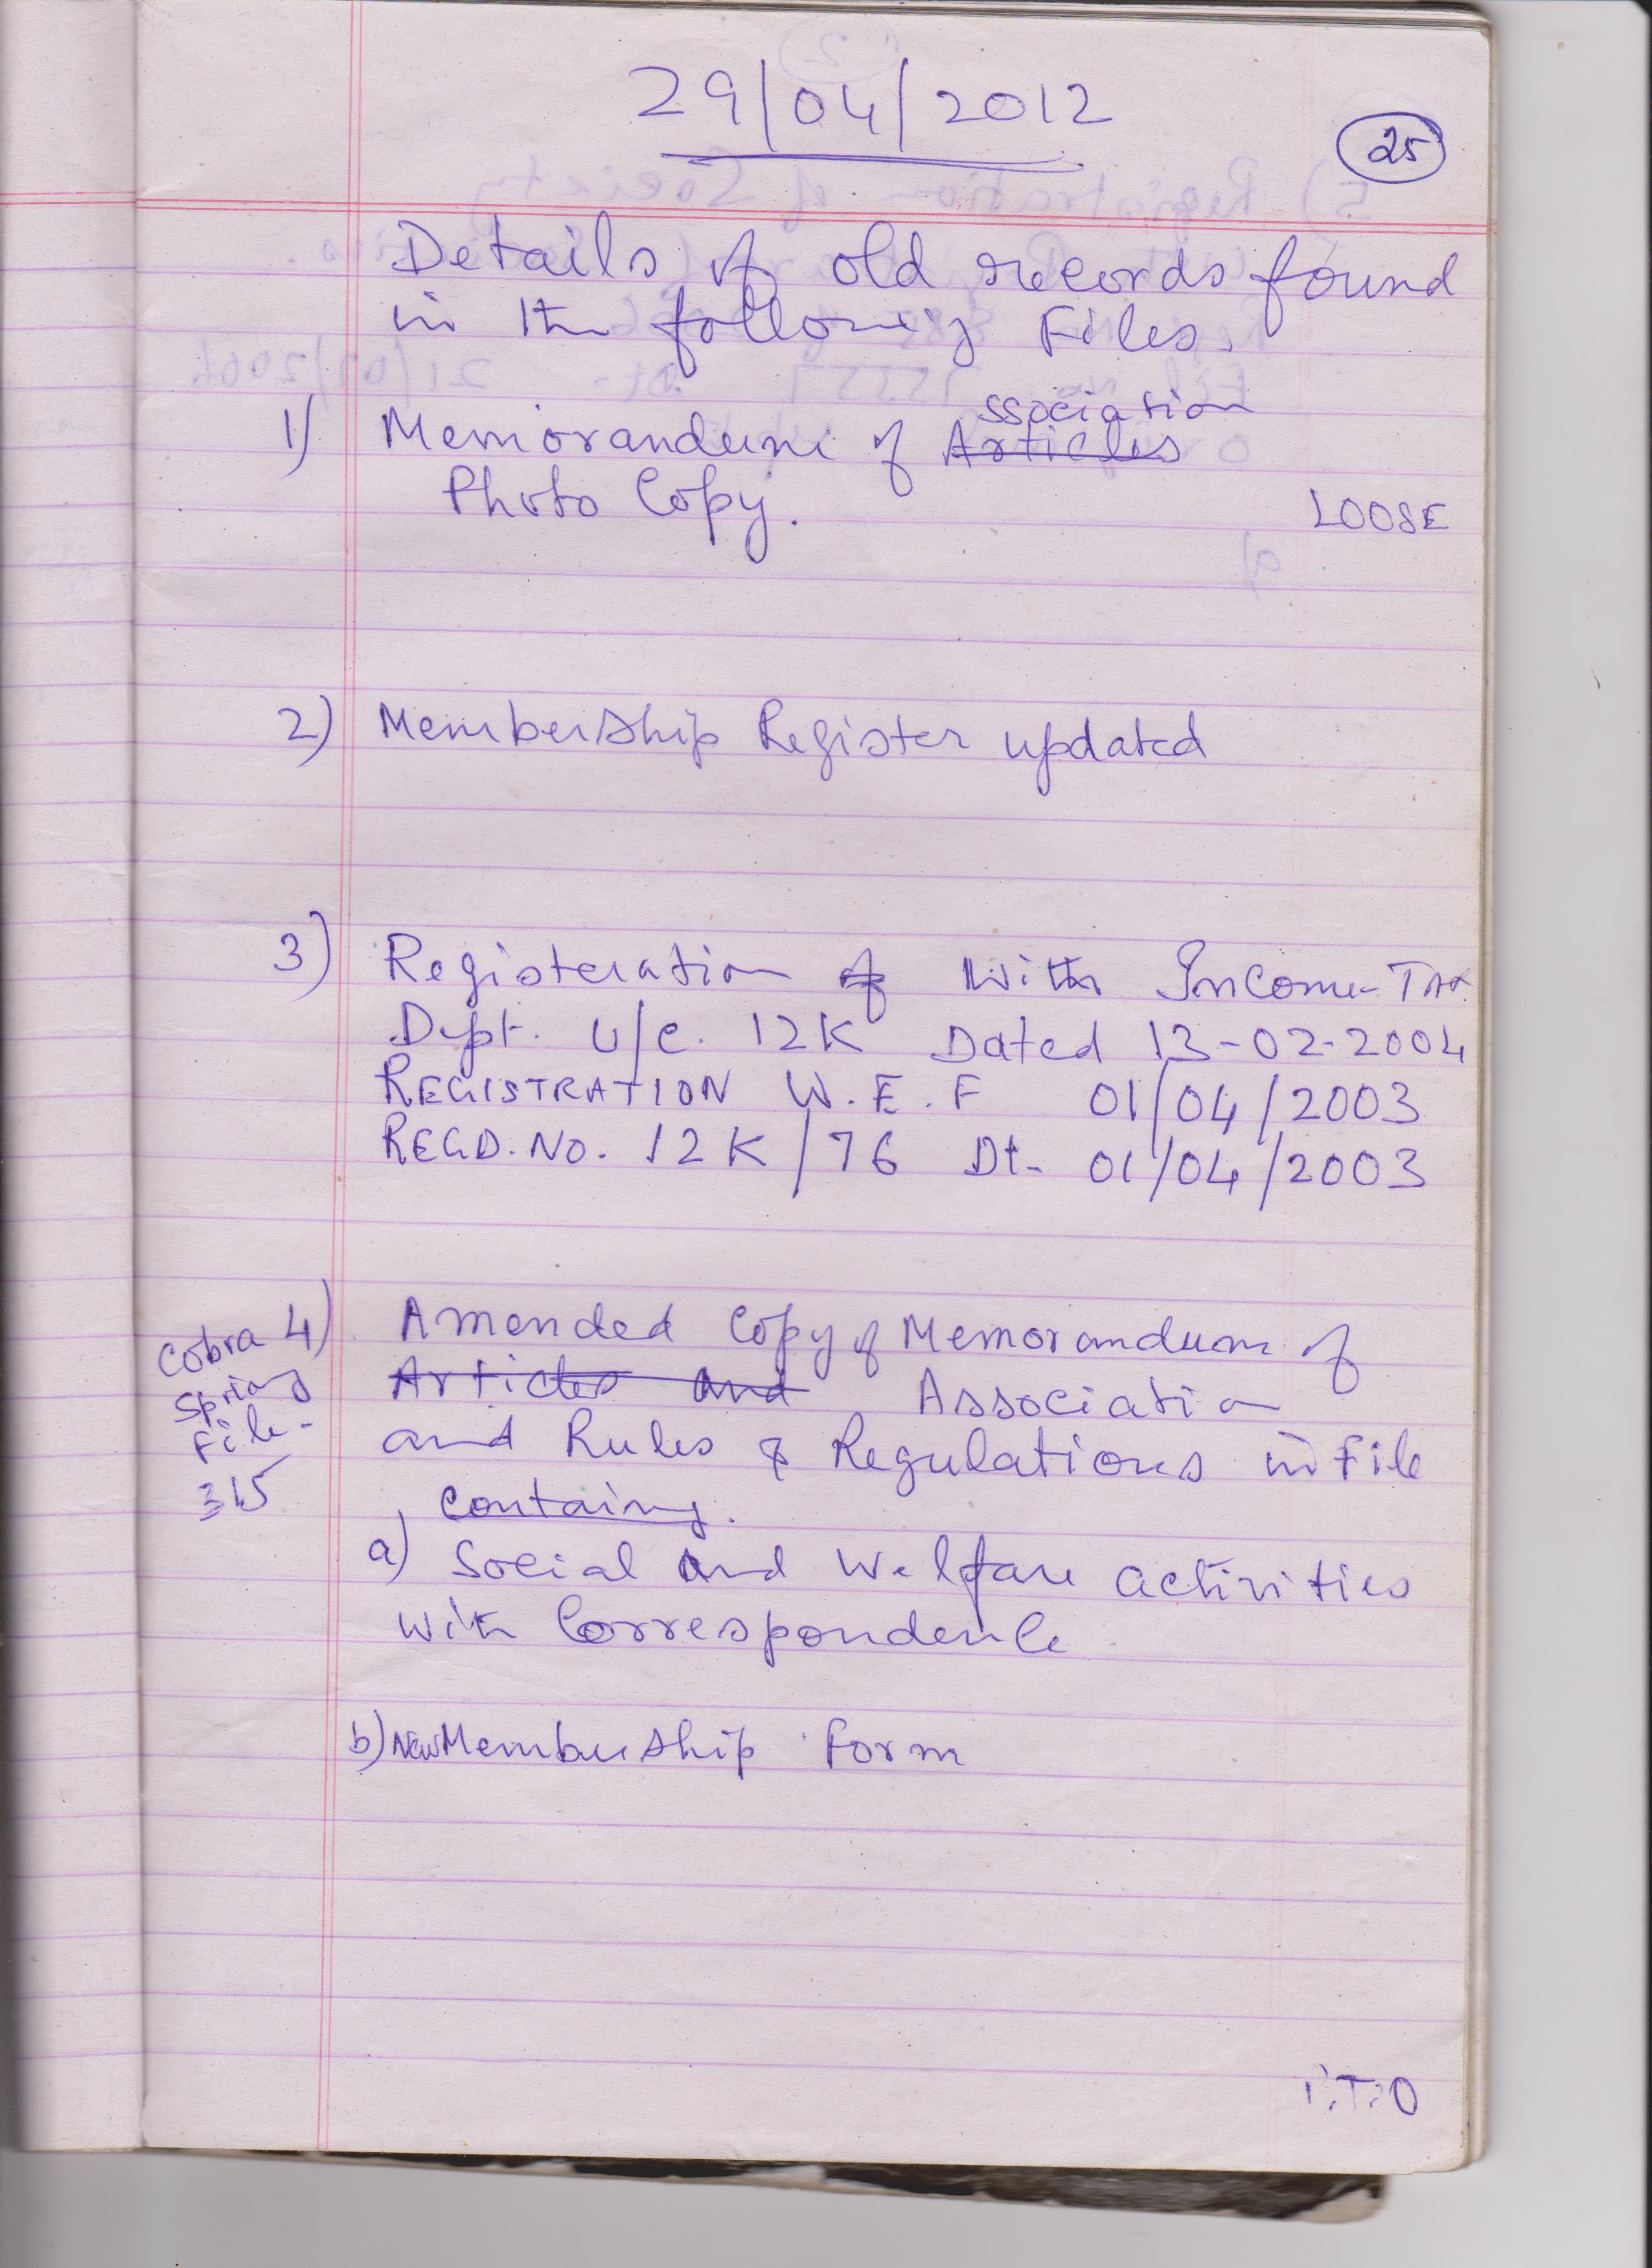 29/04/2012
25
Details of old records found
in the following Files.
1) Memorandum of Articles ssociation
Photo Copy.
LOOSE
2) Membership Register updated
3) Registeration of With Income-Tax
Dept. u/c. 12K Dated 13-02-2004
REGISTRATION W.E.F 01/04/2003
REGD. NO. 12K/76 Dt- 01/04/2003
4) Amended Copy of Memorandum of
Articles and Association
and Rules & Regulations in File
containing.
Cobra
Spring
File-
315
a) Social and Welfare activities
with Correspondence
b) New Membership Form
P.T.O